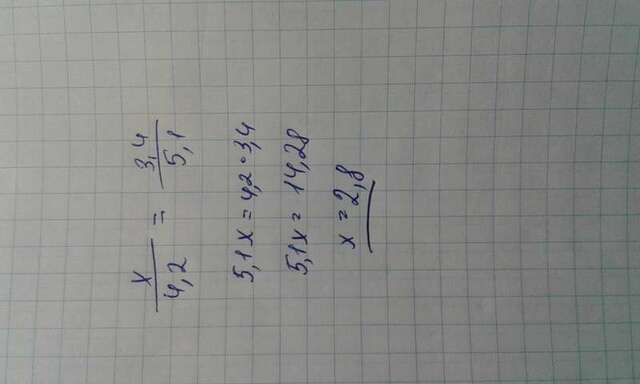 x/4,2 = 3,4/5,1
5,1x = 4,2 · 3,4
5,1x = 14,28
x = 2,8